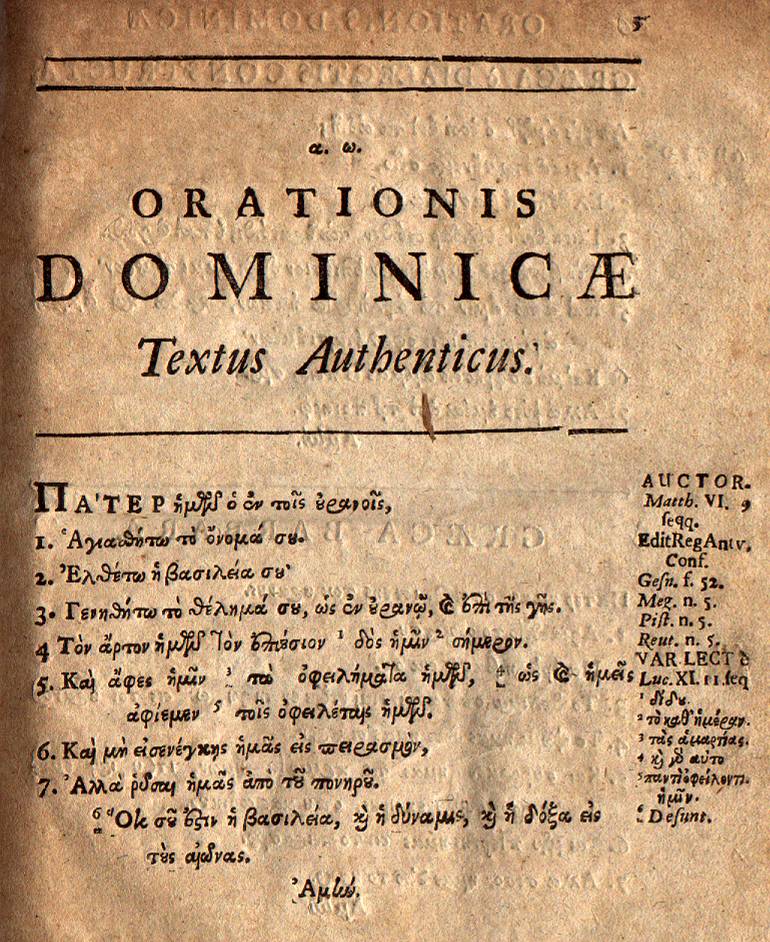 5
α. ω.
ORATIONIS
DOMINICÆ
Textus Authenticus.
ΠΑ'ΤΕΡ ἡμῶν ὁ ἐν τοῖς ὐρανοῖς,
1. Ἁγιαϑήτω τὸ ὄνομά σου.
2. Ἐλθέτω ἡ βασιλεία σου·
3. Γενηθήτω τὸ θέλημά σου, ὡς ἐν οὐρανῷ, καὶ ἐπὶ τῆς γῆς.
4 Τὸν ἄρτον ἡμῶν τὸν ἐπιούσιον ¹ δὸς ἡμῖν ² σήμερον.
5. Καὶ ἄφες ἡμῖν ³ τὰ ὀφειλήματα ἡμῶν, ⁴ ὡς καὶ ἡμεῖς
ἀφίεμεν ⁵ τοῖς ὀφειλέταις ἡμῶν.
6. Καὶ μὴ εἰσενέγκης ἡμᾶς εἰς πειρασμὸν,
7. Ἀλλὰ ῥῦσαι ἡμᾶς ἀπὸ τοῦ πονηροῦ.
⁶ Ὅτι σοῦ ἐστιν ἡ βασιλεία, καὶ ἡ δύναμις, καὶ ἡ δόξα εἰς
τοὺς αἰῶνας.
Ἀμήν.
AUCTOR.
Matth. VI. 9
seqq.
EditRegAntv,
Conf.
Gesn. f. 52.
Meg. n. 5.
Pist. n. 5.
Reut. n. 5.
VAR LECT
Luc. XI. 11. seq
¹ δίδου.
² τὸ καθ' ἡμέραν.
³ τὰς ἁμαρτίας.
⁴ καὶ γὰρ αὐτο
⁵ παντὶ ὀφείλοντι.
ἡμῖν.
⁶ Desunt.